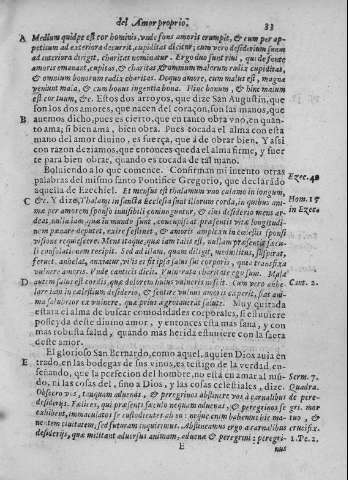 del Amor proprio. 33
A Medium quidpe est cor hominis, vnde fons amoris erumpit, & cum per ap-
petitum ad exteriora decurrit, cupiditas dicitur, cum vero desiderium suum
ad interiora dirigit, charitas nominatur. Ergo duo sunt riui, qui de fonte
amoris emanant, cupiditas, & charitas & omnium malorum radix cupiditas,
& omnium bonorum radix charitas. Doquo amore, cum malus est, magna
veniunt mala, & cum bonus ingentia bona. Hinc bonum, & hinc malum
est cor tuum, &c. Estos dos arroyos, que dize San Augustin, que
son los dos amores, que nacen del coraçon, son las manos, que
B auemos dicho, pues es cierto, que en tanto obra vno, en quan-
to ama, si bien ama, bien obra. Pues tocada el alma con esta
mano del amor diuino, es fuerça, que à de obrar bien. Y assi
con razon deziamos, que entonces queda el alma firme, y fuer
te para bien obrar, quando es tocada de tal mano.
Boluiendo alo que comence. Confirman mi intento otras
palabras del mismo santo Pontifice Gregorio, que declarãdo
aquella de Ezechiel. Et mensus est thalamum vno calamo in longum, Ezec. 40
C &c. Y dize, Thalami in sancta Ecclesia sunt illorum corda, in quibus ani- Hom. 15
mæ per amorem sponso inuisibili coniunguntur, & eius desiderio mens ar- in Ezech
deat, nulla iam quæ in mundo sunt, concupiscat præsentis vitæ longitudi-
nem pœnam deputet, exire festinet, & amoris amplexu in cœlestis sponsi
visione requiescere. Mens itaque, quæ iam talis est, nullam præsentis sæcu-
li consolationem recipit. Sed ad illam, quam diligit, medullitus, suspirat,
feruet, anhelat, anxiatur, vilis ei fit ipsa salus sui corporis, quia transfixa
vulnere amoris. Vnde canticis dicit. Vulnerata charitate ego sum. Mala
D autem salus est cordis, quæ dolorem huius vulneris nescit. Cum vero anhe- Cant. 2.
lare iam in cælestium desiderio, & sentire vulnus amoris cæperit, fiet ani-
ma salubrior ex vulnere, quæ prius ægrotauerat salute. Muy quitada
estarà el alma de buscar comodidades corporales, si estuuiere
posseyda deste diuino amor, y entonces esta mas sana, y con
mas robusta salud, quando mas herida estuuiere con la saeta
deste amor.
El glorioso San Bernardo, como aquel, aquien Dios auia en
E trado, en las bodegas de sus vinos, es testigo de la verdad, en-
señando, que la perfecion del hombre, no està en amar al mũ- Serm. 7.
do, ni las cosas del, sino a Dios, y las cosas celestiales, dize. Quadra.
Obsecro vos, tamquam aduenas, & peregrinos abstinere vos à carnalibus de pere-
desiderijs. Fælices, qui præsenti sæculo nequam aduenas, & peregrinos se grs. mor
exhibent, immaculatos se custodientes ab eo: neque enim habemus hic ma- tuo, &
nentem ciuitatem, sed futuram inquirimus. Abstineamus ergo a carnalibus crucifix.
desiderijs, quæ militant aduersus animam, aduenæ & peregrini: peregri- 1. Pe. 2.
E nus